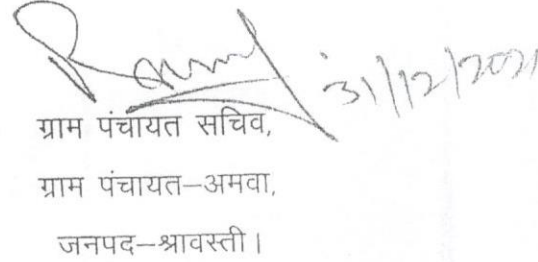 31/12/2021
ग्राम पंचायत सचिव,
ग्राम पंचायत–अमवा,
जनपद–श्रावस्ती।